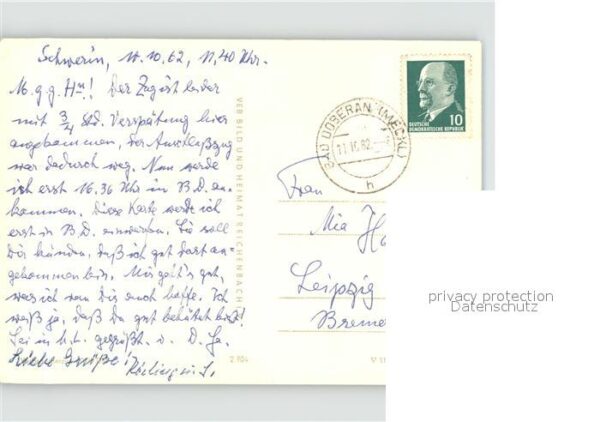 Schwerin, 11.10.62, 11,40 Uhr.
M. g. g. H! Der Zug ist leider
mit 3/4 Std. Verspätung hier
angekommen, der Anschlußzug
war dadurch weg. Nun werde
ich erst 16.36 Uhr in B.D. an-
kommen. Diese Karte werde ich
erst in B.D. einwerfen. Sie soll
Dir künden, daß ich gut dort an-
gekommen bin. Mir geht's gut,
was ich von Dir auch hoffe. Ich
weiß ja, daß Du gut behütet bist!
Sei in h. L. gegrüßt v. D.
Liebe Grüße!
VEB BILD UND HEIMAT REICHENBACH
BAD DOBERAN (MECKL)
11.10.62
h
10
DEUTSCHE
DEMOKRATISCHE REPUBLIK
Frau
Mia
Leipzig
privacy protection
Datenschutz